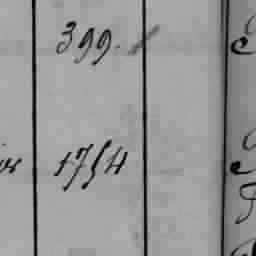 399.
1754